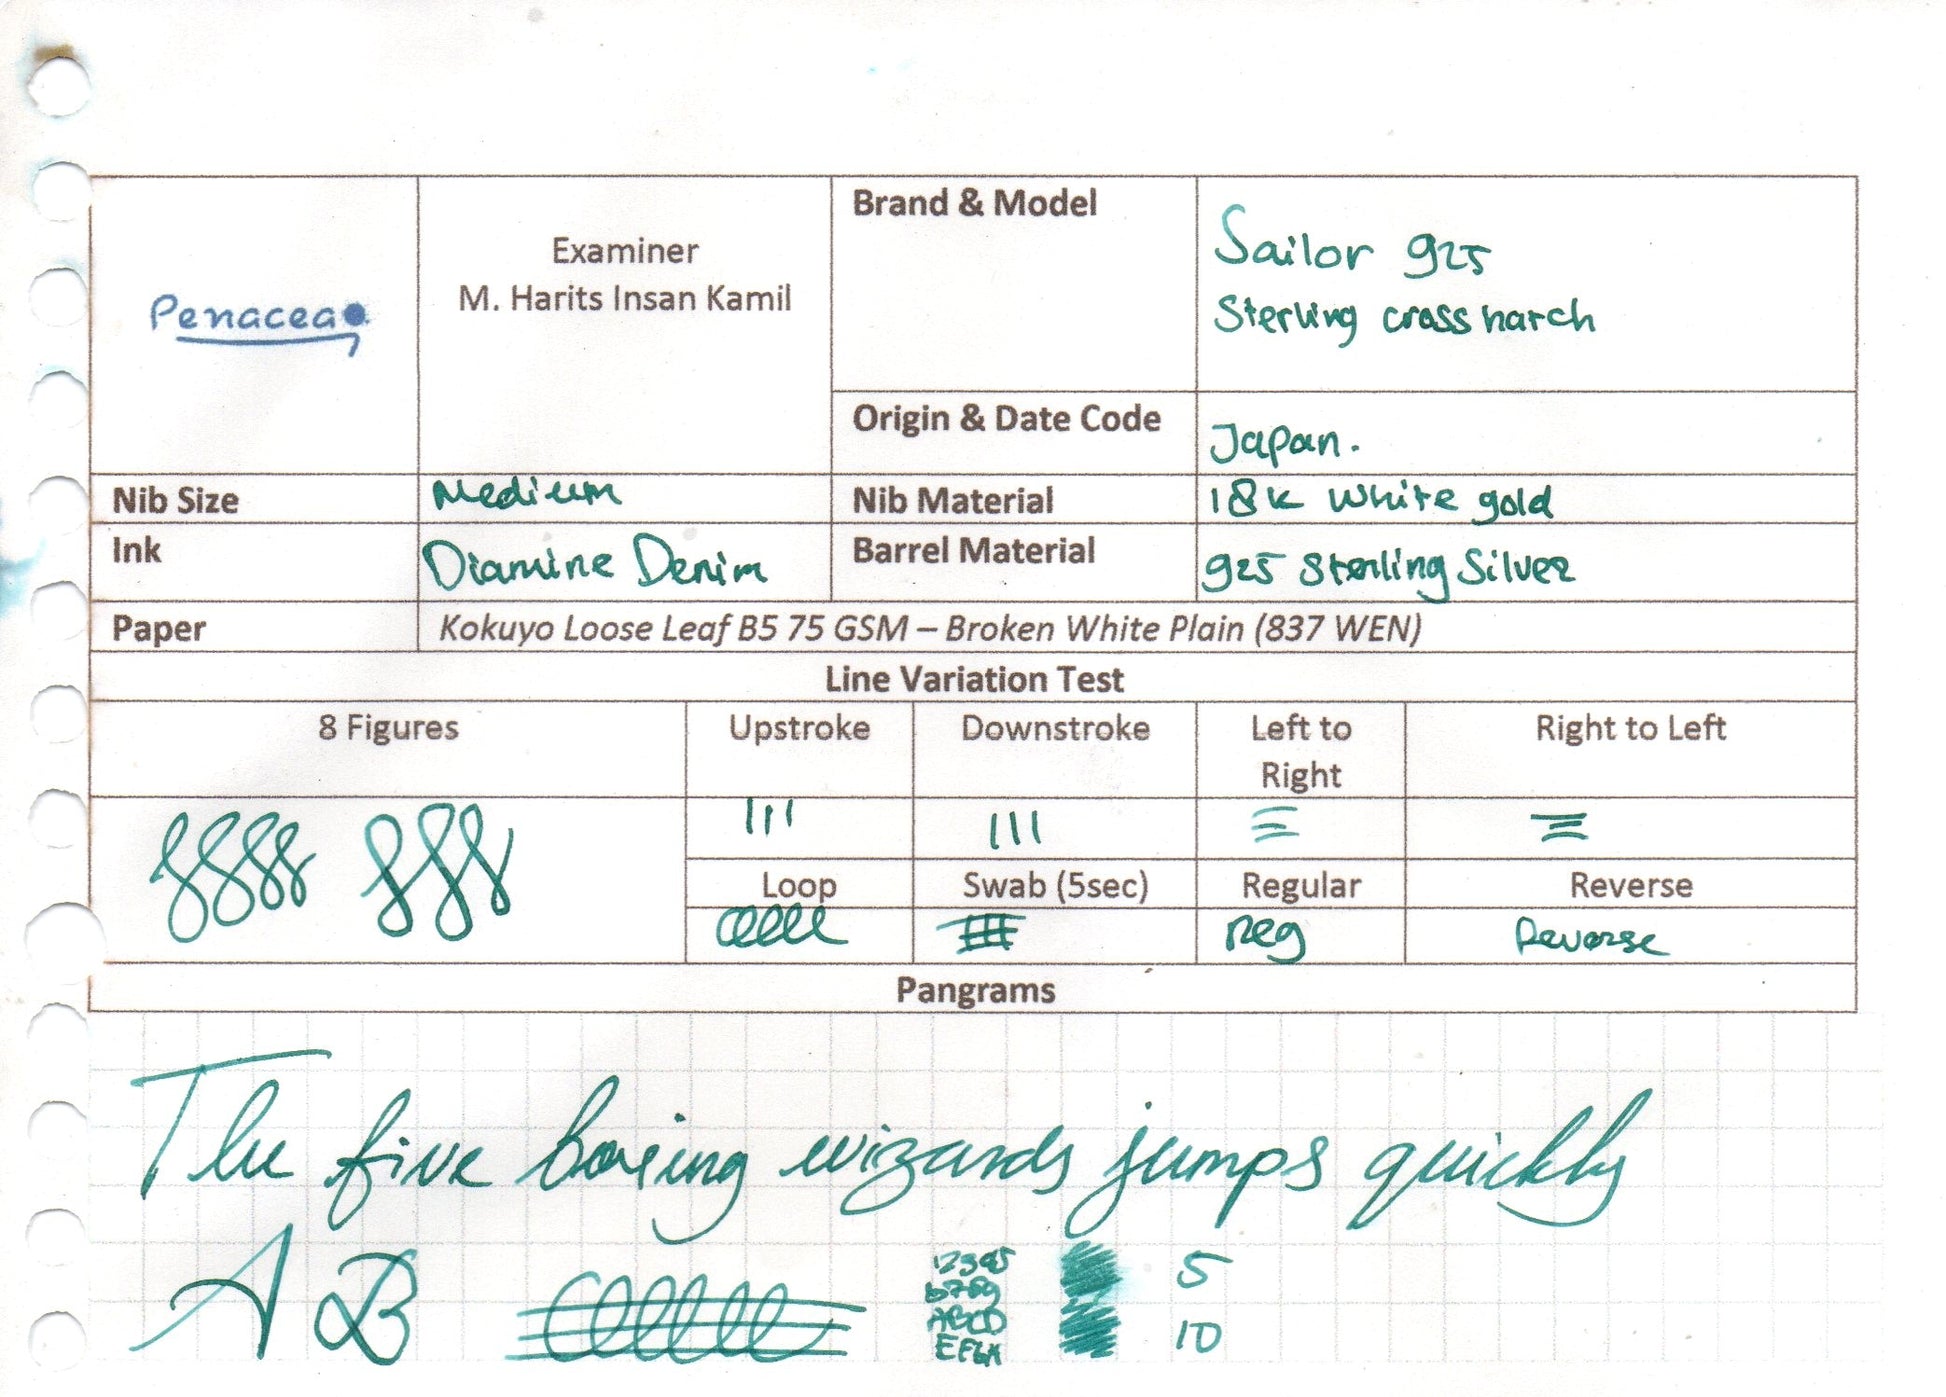 Penacea
Examiner
M. Harits Insan Kamil
Brand & Model
Sailor 925
Sterling cross hatch
Origin & Date Code
Japan.
Nib Size
Medium
Nib Material
18k White gold
Ink
Diamine Denim
Barrel Material
925 Sterling Silver
Paper
Kokuyo Loose Leaf B5 75 GSM – Broken White Plain (837 WEN)
Line Variation Test
8 Figures
Upstroke
Downstroke
Left to
Right
Right to Left
Loop
Swab (5sec)
Regular
Reverse
Reg
Reverse
Pangrams
The five boxing wizards jumps quickly
A B
12345
6789
ABCD
5
10